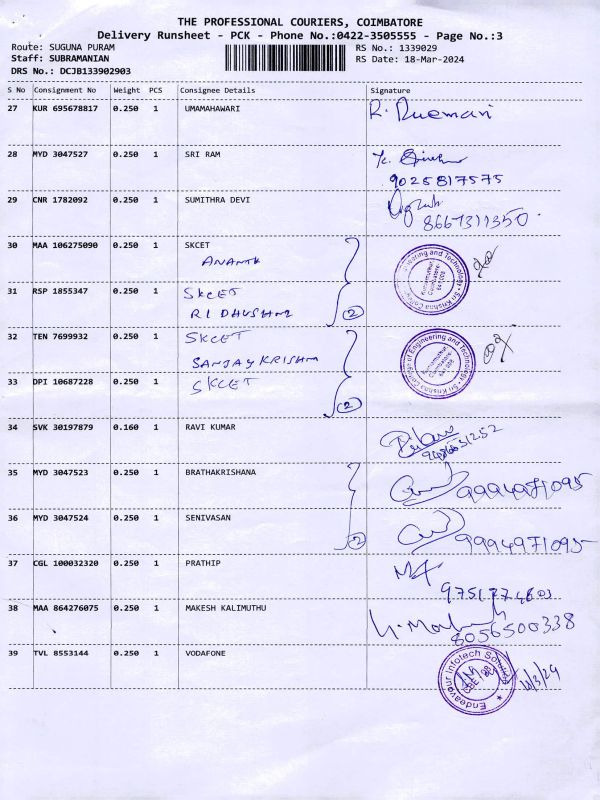 THE PROFESSIONAL COURIERS, COIMBATORE
Delivery Runsheet - PCK - Phone No.:0422-3505555 - Page No.:3
Route: SUGUNA PURAM RS No.: 1339029
Staff: SUBRAMANIAN RS Date: 18-Mar-2024
DRS No.: DCJB133902903
S No Consignment No Weight PCS Consignee Details Signature
27 KUR 695678817 0.250 1 UMAMAHAWARI
28 MYD 3047527 0.250 1 SRI RAM
9025817575
29 CNR 1782092 0.250 1 SUMITHRA DEVI
8667311350
30 MAA 106275090 0.250 1 SKCET
ANANTH
31 RSP 1855347 0.250 1 SKCET
RIDHUSHNI
2
32 TEN 7699932 0.250 1 SKCET
SANJAY KRISHNA
33 DPI 10687228 0.250 1 SKCET
2
34 SVK 30197879 0.160 1 RAVI KUMAR
35 MYD 3047523 0.250 1 BRATHAKRISHANA
9994971095
36 MYD 3047524 0.250 1 SENIVASAN
2
9994971095
37 CGL 100032320 0.250 1 PRATHIP
38 MAA 864276075 0.250 1 MAKESH KALIMUTHU
8056500338
39 TVL 8553144 0.250 1 VODAFONE
Endeavour Infotech Solution